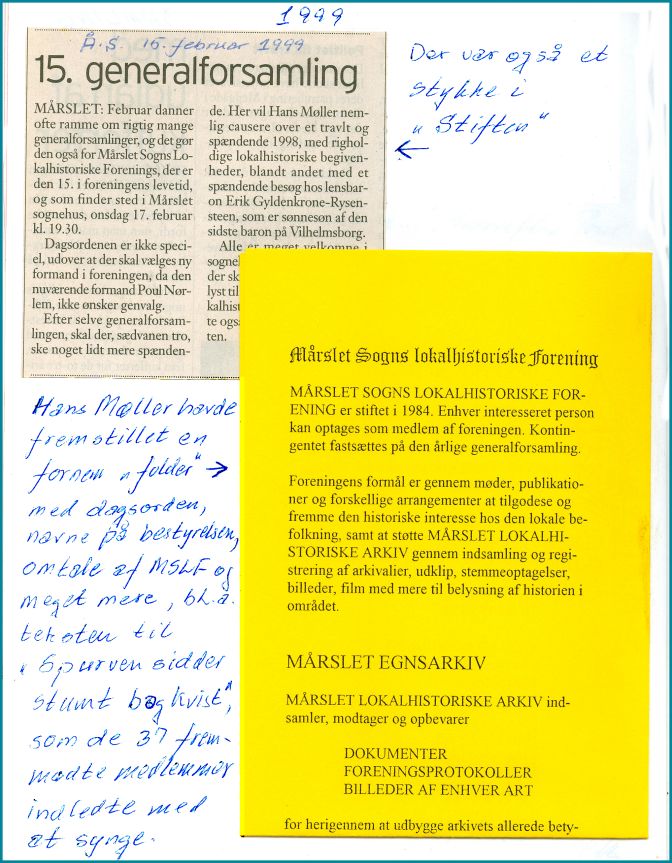 1999
Å.S. 15. februar 1999
15. generalforsamling
MÅRSLET: Februar danner
ofte ramme om rigtig mange
generalforsamlinger, og det gør
den også for Mårslet Sogns Lo-
kalhistoriske Forenings, der er
den 15. i foreningens levetid,
og som finder sted i Mårslet
sognehus, onsdag 17. februar
kl. 19.30.
Dagsordenen er ikke speci-
el, udover at der skal vælges ny
formand i foreningen, da den
nuværende formand Poul Nør-
lem, ikke ønsker genvalg.
Efter selve generalforsam-
lingen, skal der, sædvanen tro,
ske noget lidt mere spænden-
de. Her vil Hans Møller nem-
lig causere over et travlt og
spændende 1998, med righol-
dige lokalhistoriske begiven-
heder, blandt andet med et
spændende besøg hos lensbar-
on Erik Gyldenkrone-Rysen-
steen, som er sønnesøn af den
sidste baron på Vilhelmsborg.
Alle er meget velkomne i
sogneh
der sk
lyst til
kalhist
te ogs
ten.
Der var også et
stykke i
"Stiften"
←
Hans Møller havde
fremstillet en
fornem "folder" →
med dagsorden,
navne på bestyrelsen,
omtale af MSLF og
meget mere, bl.a.
teksten til
"Spurven sidder
stumt bag kvist",
som de 37 frem-
mødte medlemmer
indledte med
at synge.
Mårslet Sogns lokalhistoriske Forening
MÅRSLET SOGNS LOKALHISTORISKE FOR-
ENING er stiftet i 1984. Enhver interesseret person
kan optages som medlem af foreningen. Kontin-
gentet fastsættes på den årlige generalforsamling.
Foreningens formål er gennem møder, publikatio-
ner og forskellige arrangementer at tilgodese og
fremme den historiske interesse hos den lokale be-
folkning, samt at støtte MÅRSLET LOKALHI-
STORISKE ARKIV gennem indsamling og regi-
strering af arkivalier, udklip, stemmeoptagelser,
billeder, film med mere til belysning af historien i
området.
MÅRSLET EGNSARKIV
MÅRSLET LOKALHISTORISKE ARKIV ind-
samler, modtager og opbevarer
DOKUMENTER
FORENINGSPROTOKOLLER
BILLEDER AF ENHVER ART
for herigennem at udbygge arkivets allerede bety-